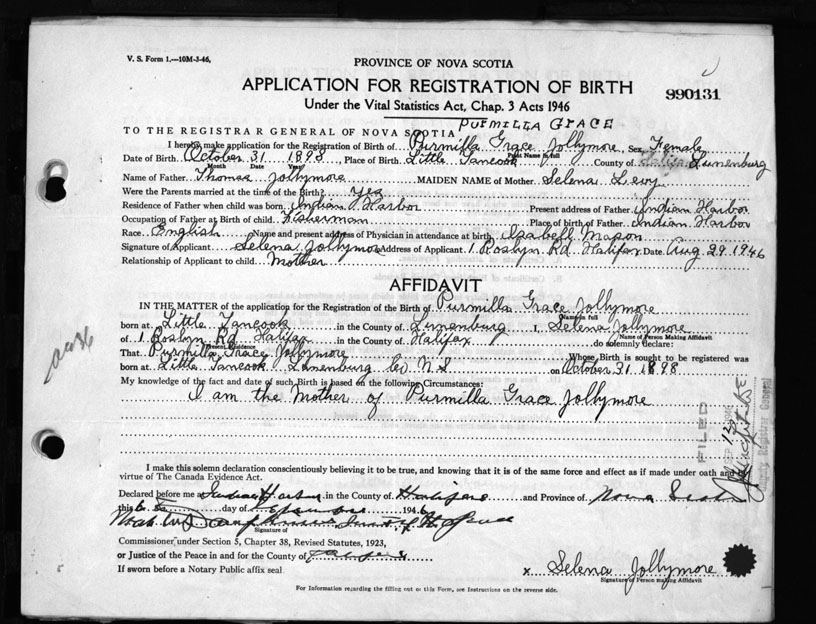 V. S. Form 1.—10M-3-46,
PROVINCE OF NOVA SCOTIA
APPLICATION FOR REGISTRATION OF BIRTH
990131
Under the Vital Statistics Act, Chap. 3 Acts 1946
PURMILLA GRACE
TO THE REGISTRAR GENERAL OF NOVA SCOTIA
I hereby make application for the Registration of Birth of Purmilla Grace Jollymore, Sex Female
Print Name in full
Date of Birth October 31 1898, Place of Birth Little Tancook County of Lunenburg
Month Date Year
Name of Father Thomas Jollymore MAIDEN NAME of Mother Selena Levy
Were the Parents married at the time of the Birth? yes
Residence of Father when child was born Indian Harbor Present address of Father Indian Harbor
Occupation of Father at Birth of child Fisherman Place of birth of Father Indian Harbor
Race English Name and present address of Physician in attendance at birth Izabell Mason
Signature of Applicant Selena Jollymore Address of Applicant 1 Roslyn Rd Halifax Date Aug 29 1946
Relationship of Applicant to child Mother
AFFIDAVIT
IN THE MATTER of the application for the Registration of Birth of Purmilla Grace Jollymore
Name in full
born at Little Tancook in the County of Lunenburg I, Selena Jollymore
Name of Person Making Affidavit
of 1 Roslyn Rd Halifax in the County of Halifax do solemnly declare:
Present Residence
That Purmilla Grace Jollymore Whose Birth is sought to be registered was
born at Little Tancook Lunenburg Co N S on October 31 1898
My knowledge of the fact and date of such Birth is based on the following Circumstances:
I am the Mother of Purmilla Grace Jollymore
FILED
I make this solemn declaration conscientiously believing it to be true, and knowing that it is of the same force and effect as if made under oath and by
virtue of The Canada Evidence Act.
Declared before me at Indian Harbor in the County of Halifax and Province of Nova Scotia
this day of 1946
Signature of
Commissioner under Section 5, Chapter 38, Revised Statutes, 1923,
or Justice of the Peace in and for the County of Halifax
If sworn before a Notary Public affix seal
x Selena Jollymore
Signature of Person making Affidavit
For Information regarding the filling out of this Form, see Instructions on the reverse side.